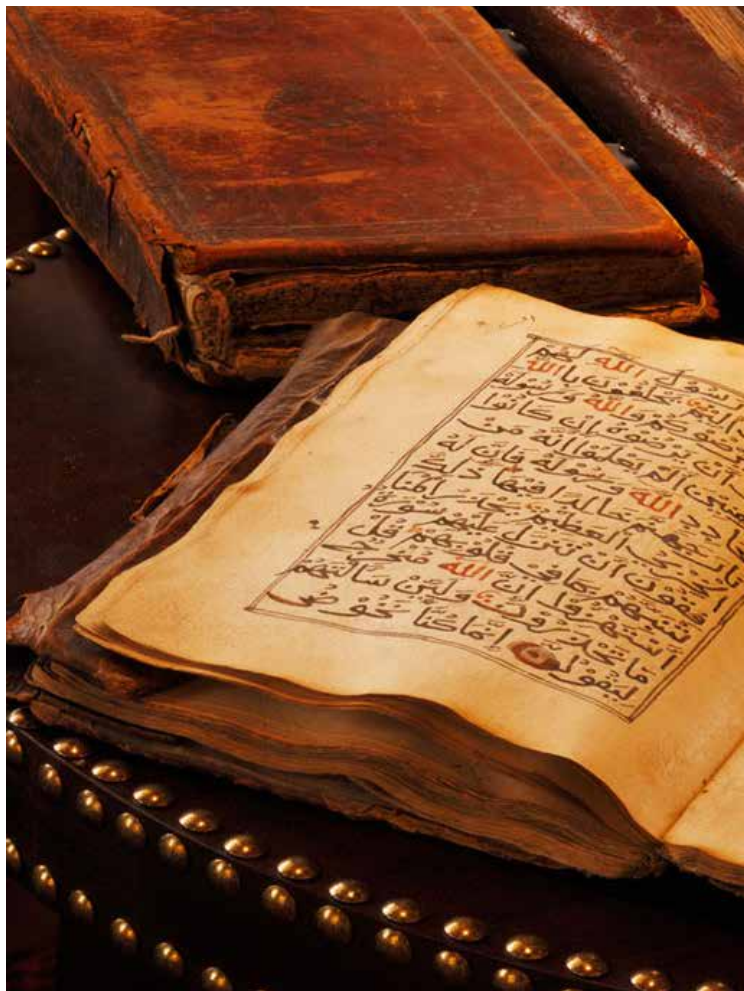 رَسُولَ الله لَهُمْ
اَلِيمٌ يَحْلِفُونَ بِالله
لِيُرْضُوكُمْ وَالله وَرَسُولُهُ
اَنْ يُرْضُوهُ اِنْ كَانُوا
مُومِنِينَ اَلَمْ يَعْلَمُوا اَنَّهُ مَنْ
يُحَادِدِ الله وَرَسُولَهُ فَاَنَّ لَهُ
نَارَ جَهَنَّمَ خَالِدًا فِيهَا ذَلِكَ
الْخِزْيُ الْعَظِيمُ يَحْذَرُ الْمُنَا
فِقُونَ اَنْ تُنَزَّلَ عَلَيْهِمْ سُورَةٌ
تُنَبِّئُهُمْ بِمَا فِي قُلُوبِهِمْ قُلِ
اسْتَهْزِءُوا اِنَّ الله مُخْرِجٌ
مَا تَحْذَرُونَ وَلَئِنْ سَاَلْتَهُمْ
لَيَقُولُنَّ اِنَّمَا كُنَّا نَخُوضُ